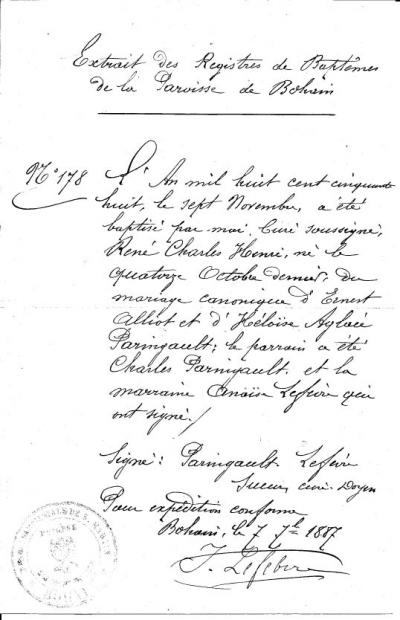 Extrait des Registres de Baptêmes
de la Paroisse de Bohain
N° 178 L'An mil huit cent cinquante
huit, le sept Novembre, a été
baptisé par moi, Curé soussigné,
René Charles Henri, né le
quatorze Octobre dernier, du
mariage canonique d'Ernest
Alliot et d'Héloïse Aglaée
Paringault; le parrain a été
Charles Paringault, et la
marraine Anaïse Lefèvre qui
ont signé./
Signé: Paringault Lefèvre
Sueur, curé-Doyen
Pour expédition conforme
Bohain, le 7 7bre 1887
J. Lefebvre